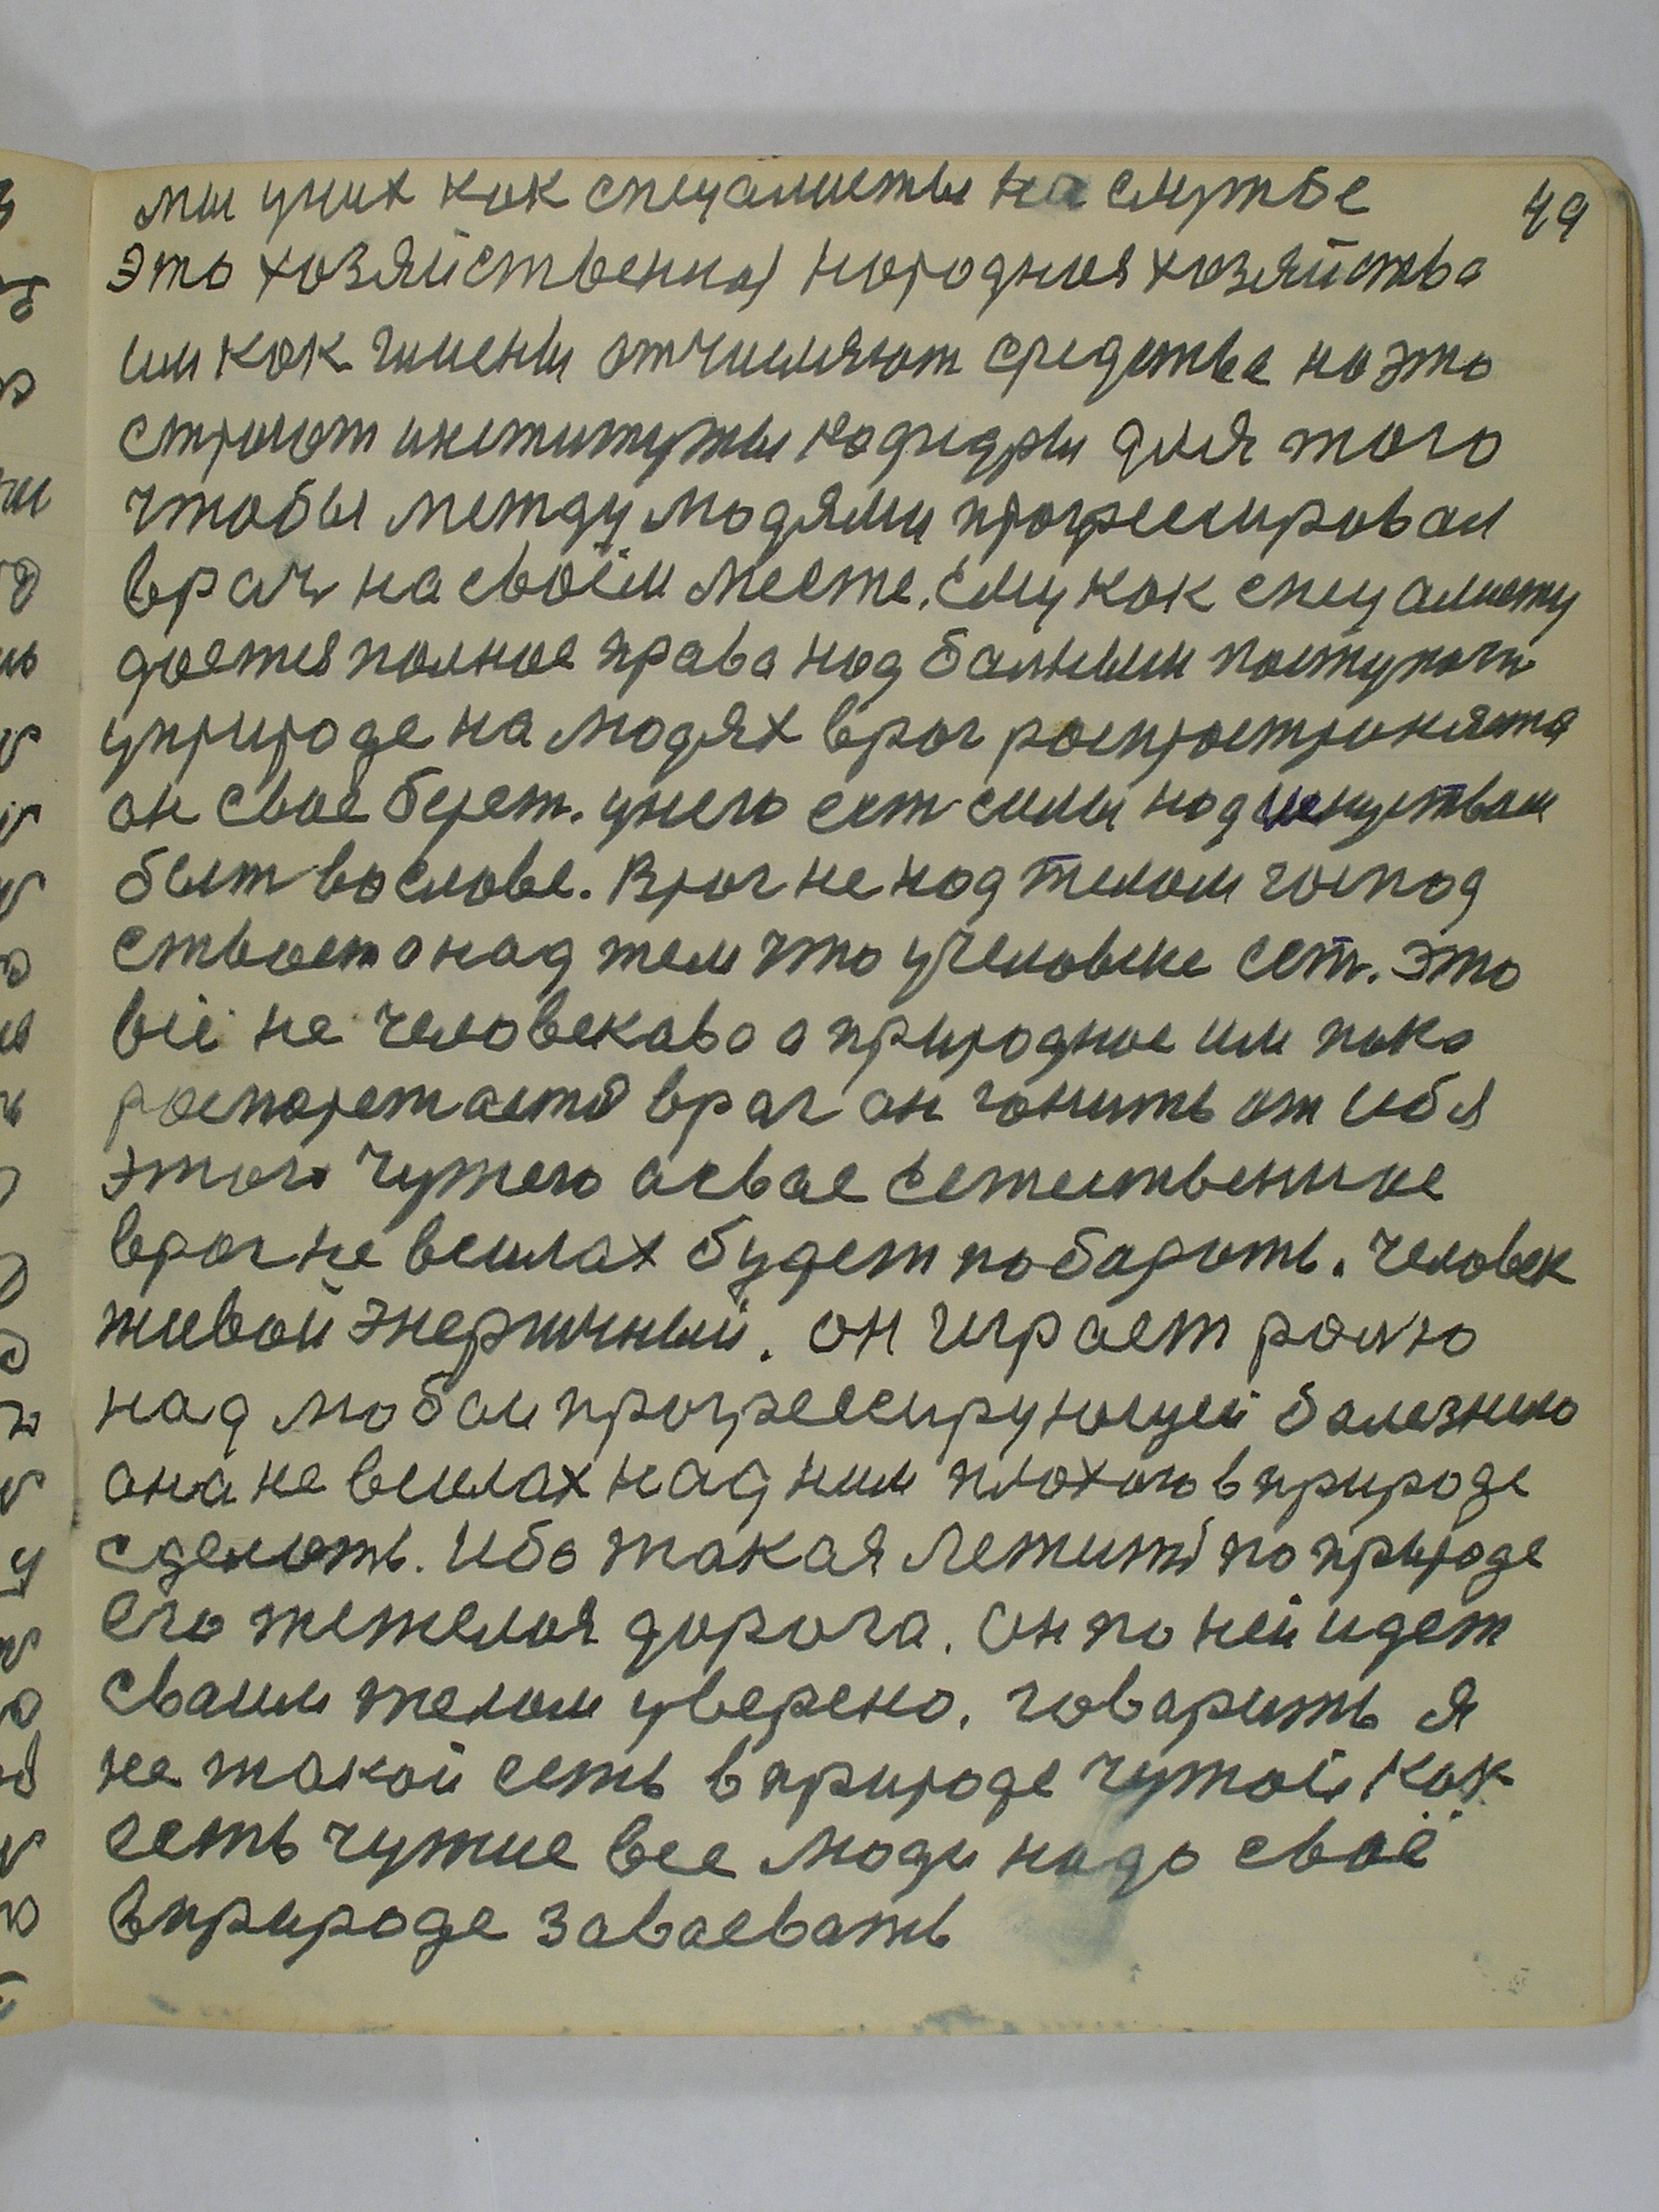 49
мы уних как спецалисты на службе
это хозяйственная народная хозяйства
им как членам отчисляют средства на это
строют институты кафедры для того
чтобы между людями прогрессировал
врач на своём месте. ему как спецалисту
дается полное права над больным поступать
уприроде на людях врач роспространяется
он свое берет. унего ест силы над искуством
быт вослове. Врач не над телом господ
ствоет а над тем что учеловеке ест. это
все не человекава а природное им пока
роспорежается врач он гонить от себя
этого чужого а свае естественное
врач не всилах будет побароть. человек
живой энергичный. он играет ролю
над любой прогрессирующей балезнию
она не всилах над ним плохого вприроде
сделать. ибо такая лежить по природе
его тежелая дорога. он по ней идет
сваим телом уверено. говарить я
не такой есть вприроде чужой как
есть чужие все люди надо своё
вприроде заваевать